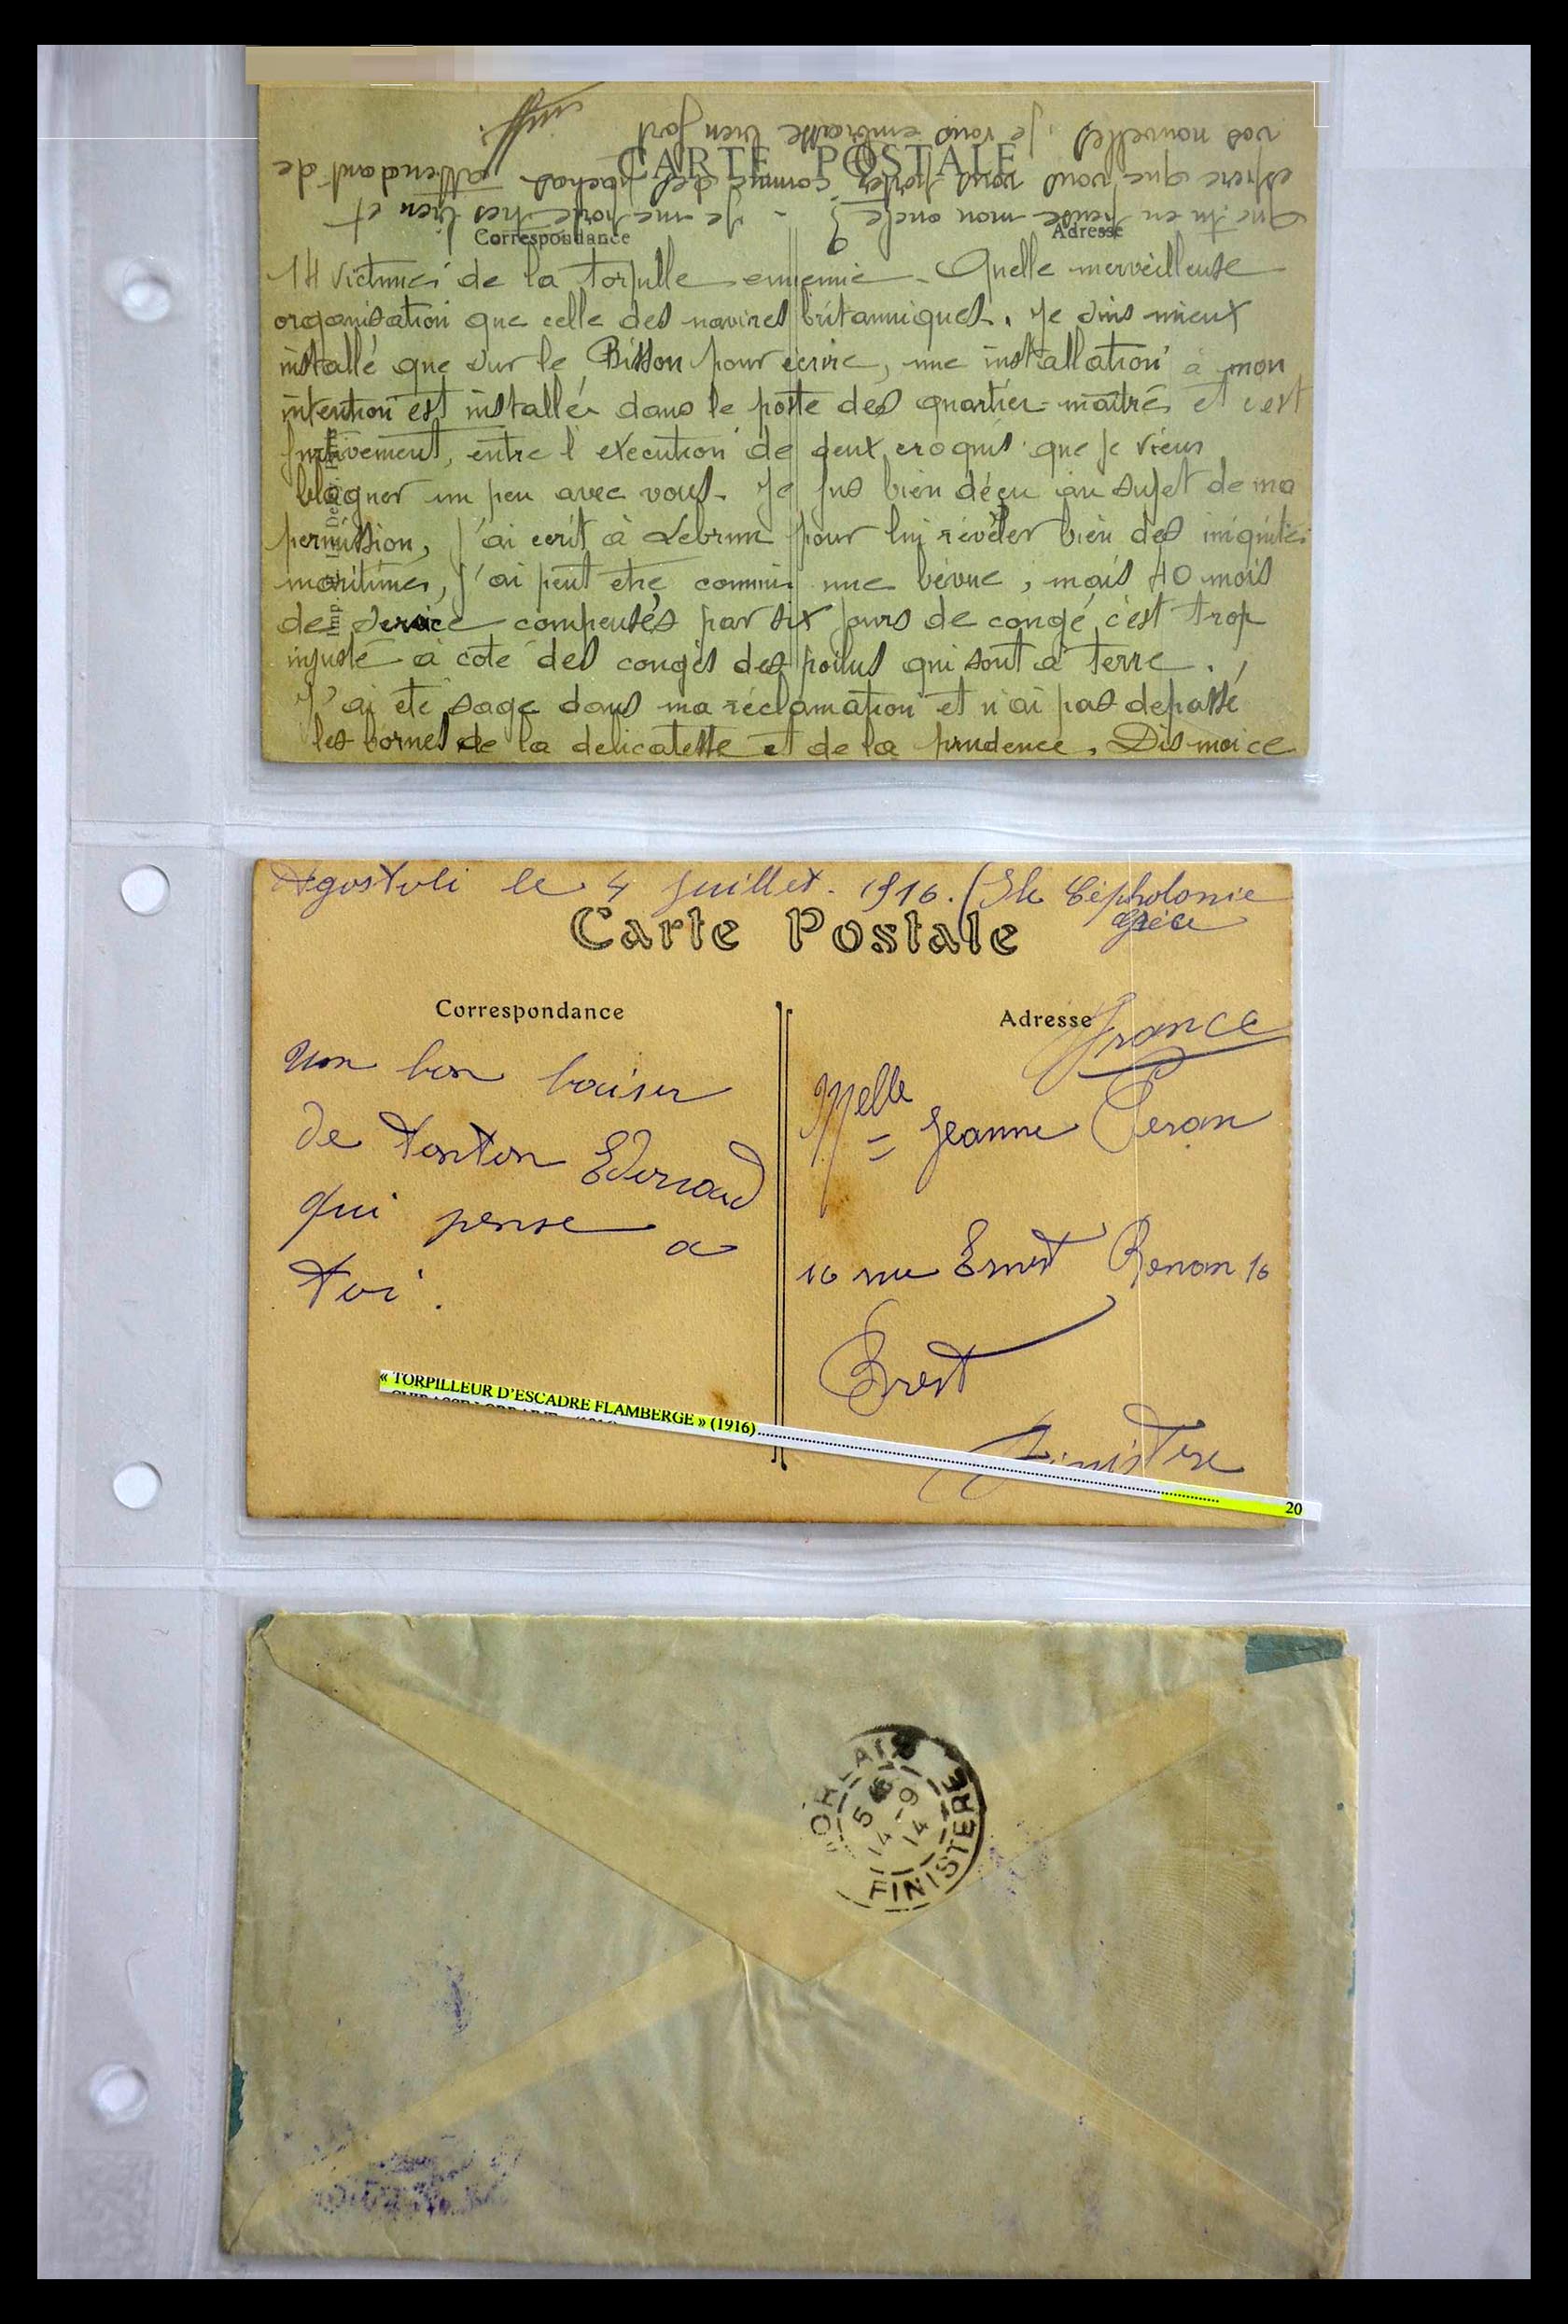 CARTE POSTALE
Correspondance
Adresse
14 victimes de la torpille ennemie - Quelle merveilleuse
organisation que celle des navires britanniques. Je suis mieux
installé que sur le Bisson pour ecrire, une installation à mon
intention est installée dans le poste des quartier-maitres et c'est
furtivement, entre l'execution de deux croquis que je viens
blaguer un peu avec vous. Je fus bien déçu au sujet de ma
permission, j'ai ecrit à Lebrun pour lui révéler bien des iniquités
maritimes, j'ai peut etre commis une bévue, mais 40 mois
de service compensés par six jours de congé, c'est trop
injuste à coté des congés des poilus qui sont à terre.
J'ai été sage dans ma réclamation et n'ai pas depassé
les bornes de la delicatesse et de la prudence. Dis moi ce
que tu en pense mon oncle? - Je me porte très bien et
espère que vous vous portez comme des pachas. Attendant de
vos nouvelles, je vous embrasse bien fort
Agostoli le 4 juillet. 1916. (Ile Cépholonie
Grèce
Carte Postale
Correspondance
Adresse
France
Un bon baiser
de tonton Edouard
qui pense a
toi.
Melle Jeanne Peran
16 rue Ernest Renan 16
Brest
Finistere
« TORPILLEUR D'ESCADRE FLAMBERGE » (1916)
20
ORLAIX
5
14 -9
14
FINISTERE